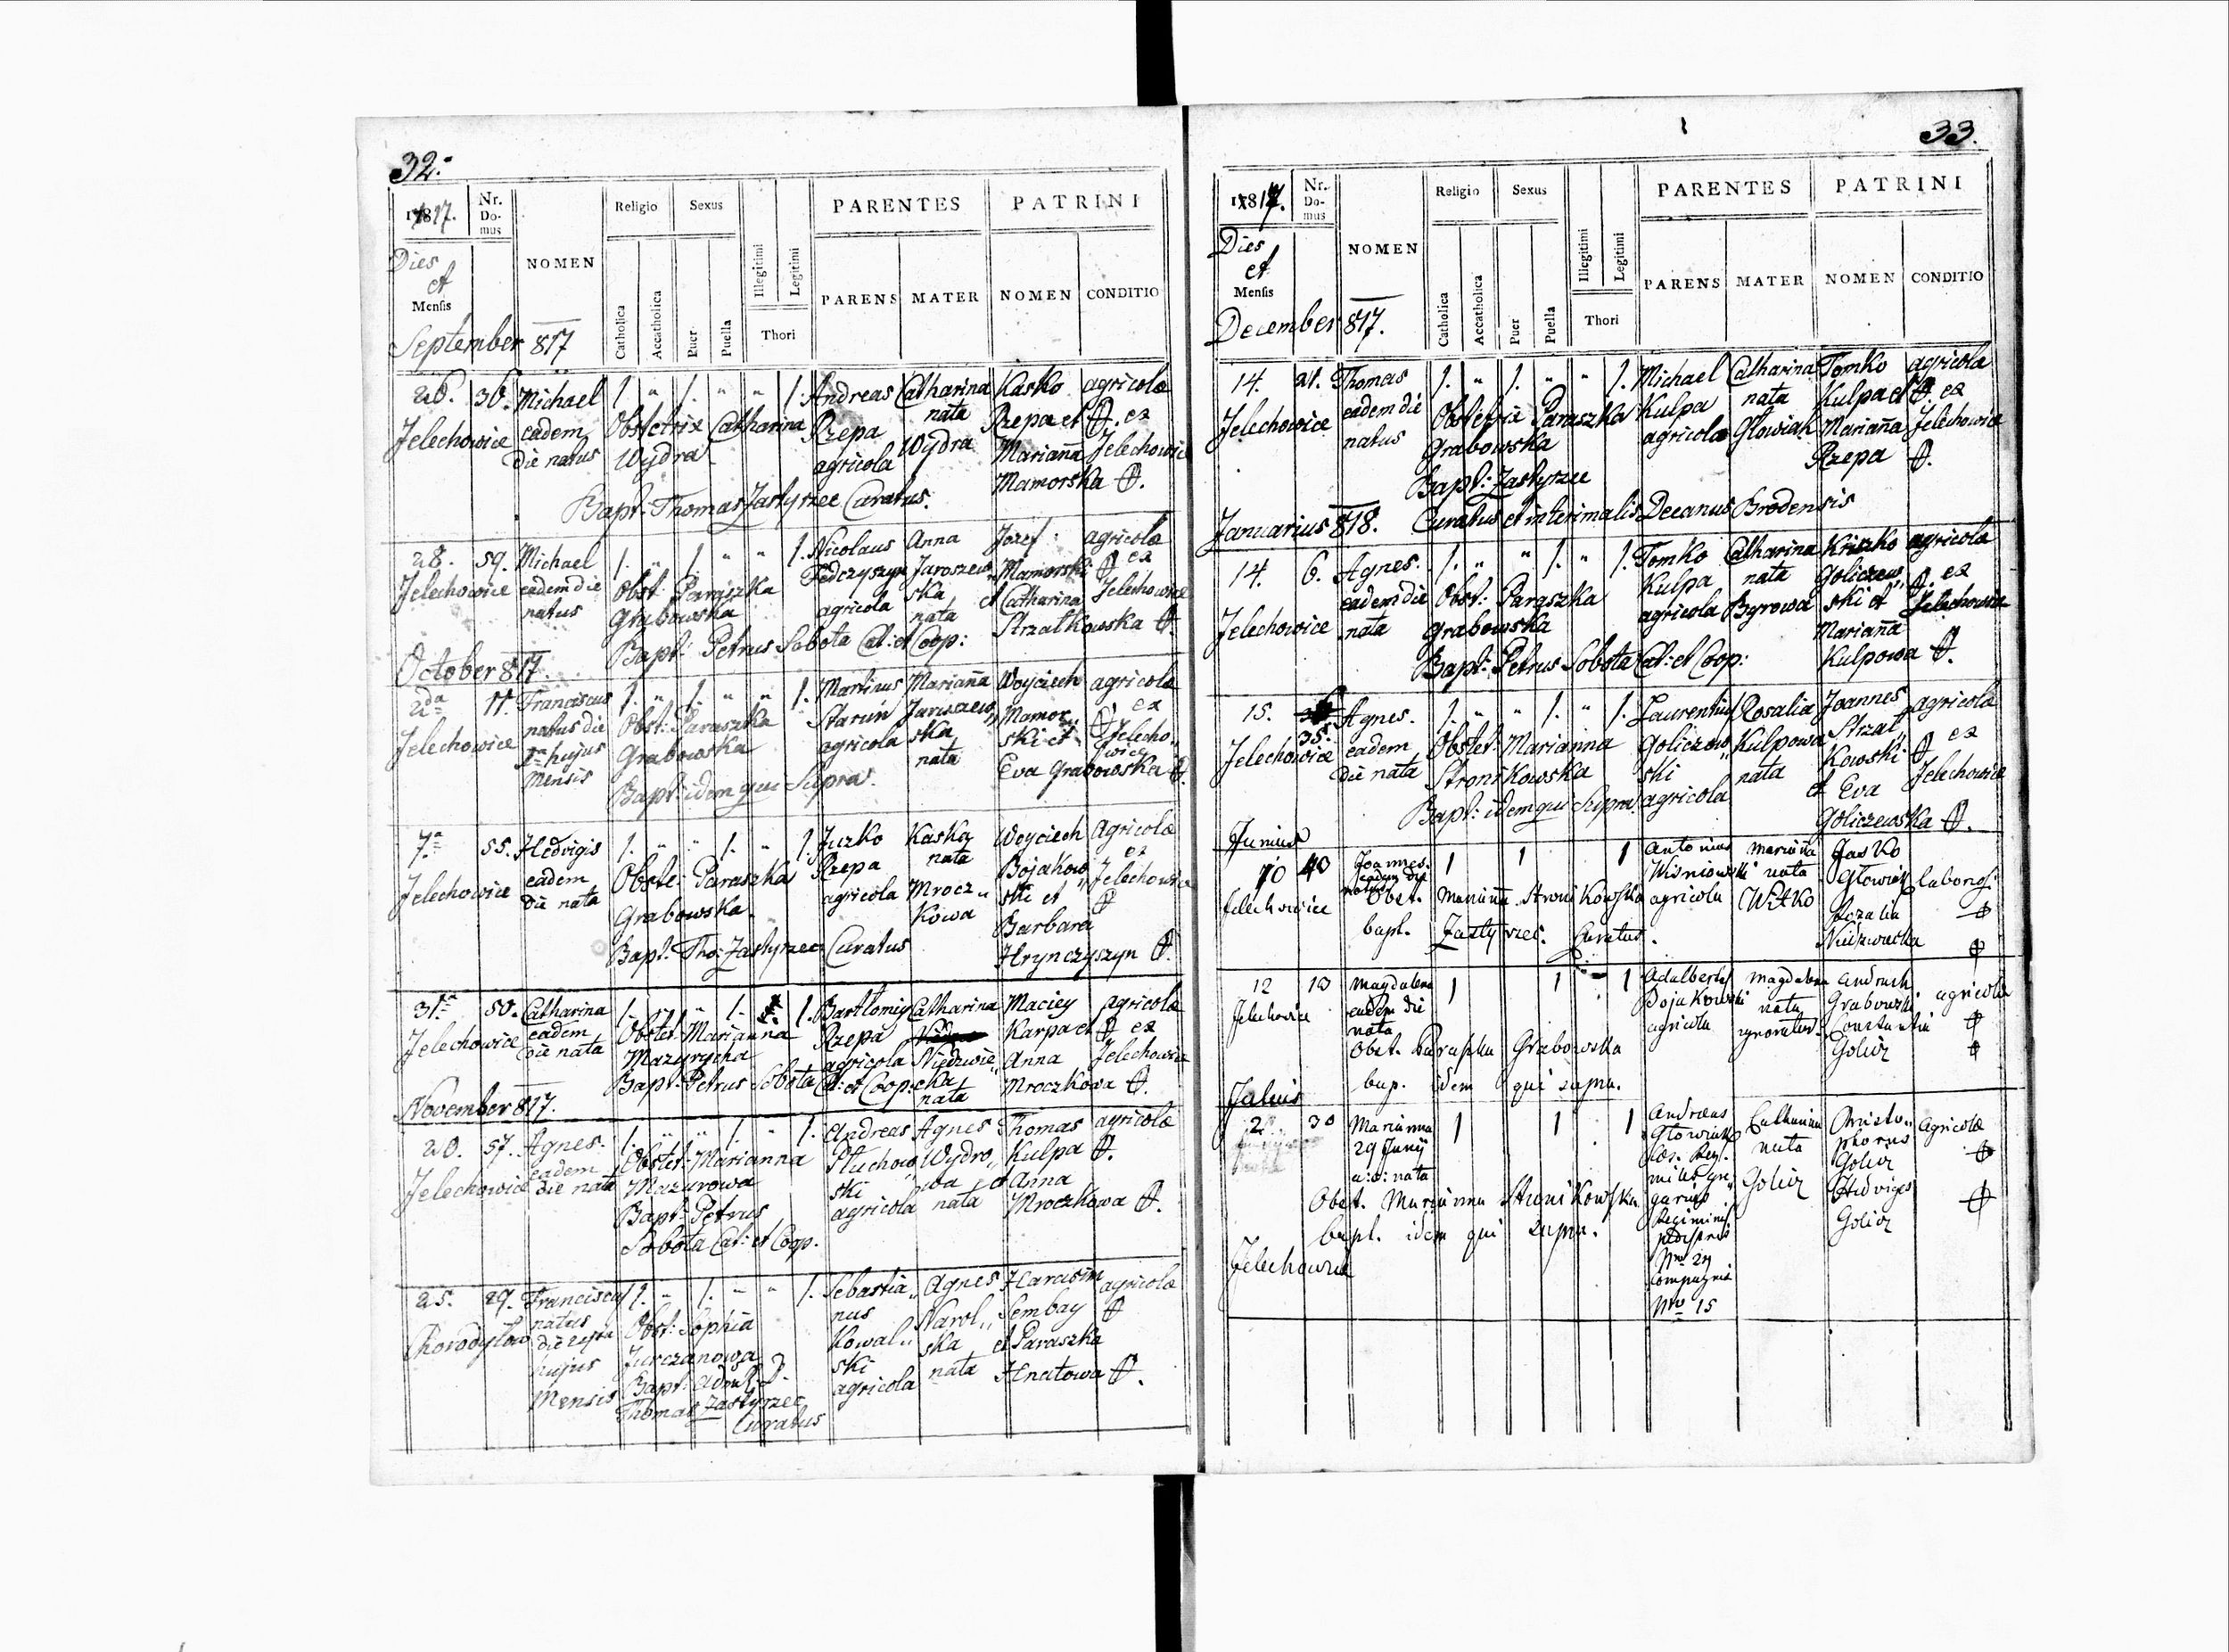 32.
1817.
Nr. Domus
NOMEN
Religio
Sexus
PARENTES
PATRINI
Dies et Mensis
Catholica
Accatholica
Puer
Puella
Illegitimi
Legitimi
Thori
PARENS
MATER
NOMEN
CONDITIO
September 817
26. 36. Michael 1. " 1. " " 1. Andreas Catharina Kasko agricolæ
Jelechowice eadem Obstetrix Catharina Rzepa nata Rzepa et ex
die natus Wydra agricola Wydra Marianna Jelechowice
Mamorska
Bapt: Thomas Zastyrzec Curatus.
28. 59. Michael 1. " 1. " " 1. Nicolaus Anna Jozef agricolæ
Jelechowice eadem die Obst: Paraszka Fedczyszyn Jaroszew„ Mamorski ex
natus Grabowska agricola ska nata et Catharina Jelechowice
Strzałkowska
Bapt: Petrus Sobota Cat: et Coop:
October 817.
2da 11. Franciscus 1. " 1. " " 1. Martinus Marianna Woyciech agricolæ
Jelechowice natus die Obst: Paraszka Jaruszew„ Mamor„ ex
hujus Grabowska agricola ska ski et Jelecho„
Mensis nata Eva Grabowska wice
Bapt: idem qui Supra.
7a 55. Hedvigis 1. " " 1. " 1. Juzko Kaska Woyciech Agricolæ
Jelechowice eadem Obste: Paraszka Rzepa nata Bojakow„ ex
die nata Grabowska agricola Mrocz„ ski et Jelechowice
kowa Barbara
Bapt: Tho: Zastyrzec Curatus Hrynczyszyn
31a 50. Catharina 1. " " 1. 1. Bartłomiej Catharina Maciey agricolæ
Jelechowice eadem Obstet: Marianna Rzepa Karpa et ex
die nata Mazurycha agricola Niedzwie„ Anna Jelechowice
Bapt: Petrus Sobota Cat: et Coop: cka nata Mroczkowa
November 817.
20. 57. Agnes. 1. " " 1. " 1. Andreas Agnes Thomas agricolæ
Jelechowice eadem Obstet: Marianna Wydro„ Kulpa
die nata Mazurowa ski wa et Anna
Bapt: Petrus agricola nata Mroczkowa
Sobota Cat: et Coop.
25. 29. Franciscus 1. " 1. " " 1. Sebastia„ Agnes Harasim agricolæ
natus Obst: Sophia nus Narol„ Sembay
die hujus Jurczanowa Kowal„ ska et Paraszka
Mensis Bapt: ski agricola nata Hnatowa
Thomas Zastyrzec
Curatus
33.
1817.
Nr. Domus
NOMEN
Religio
Sexus
PARENTES
PATRINI
Dies et Mensis
Catholica
Accatholica
Puer
Puella
Illegitimi
Legitimi
Thori
PARENS
MATER
NOMEN
CONDITIO
December 817.
14. 21. Thomas 1. " 1. " " 1. Michael Catharina Tomko agricolæ
Jelechowice eadem die Obstetrix Paraszka Kulpa nata Kulpa et ex
natus Grabowska agricola Głowiak Marianna Jelechowice
Rzepa
Bapt: Zastyrzec
Januarius 818. Curatus et interimalis Decanus Brodensis
14. 6. Agnes. 1. " " 1. " 1. Tomko Catharina agricolæ
eadem die Obst: Paraszka Kulpa nata Goliczew„ ex
Jelechowice nata Grabowska agricola Bgrowa ski et Jelechowice
Marianna
Bapt: Petrus Sobota Cat: et Coop: Kulpowa
15. 35. Agnes. 1. " " 1. " 1. Laurentius Rosalia Joannes agricolæ
Jelechowice eadem Obstet: Marianna Goliczew„ Kulpowa Strzał„ ex
die nata Stronikowska ski nata kowski Jelechowice
Bapt: idem qui Supra. agricola et Eva
Goliczewska
Junius
10 40 Joannes. 1 1 1 Antonius Marianna Jasko
eadem die natus Wisniowski nata Głowiak
Jelechowice Obst. Marianna Stronikowska agricola Witko Rozalia
bapt. Zastyrzec. Curatus. Niedzwiecka
12 13 Magdalena 1 1 1 Adalbertus Magdalena Andruch agricolæ
Jelechowice eadem die nata Bojakowski nata Grabowski
agricola ignoratur Constantia
Obst. Paraszka Grabowska Golicz
bap. idem qui supra.
Julius
2. 30 Marianna 1 1 1 Andreas Catharina Christo„ Agricolæ
29 Junij Głowiak nata phorus
a: c: nata Golicz Golicz
Obst. Marianna Stronikowska Hedviges
bapt. idem qui supra. Regiminis Golicz
Jelechowice
Nro 24
compagnia
Nro 15